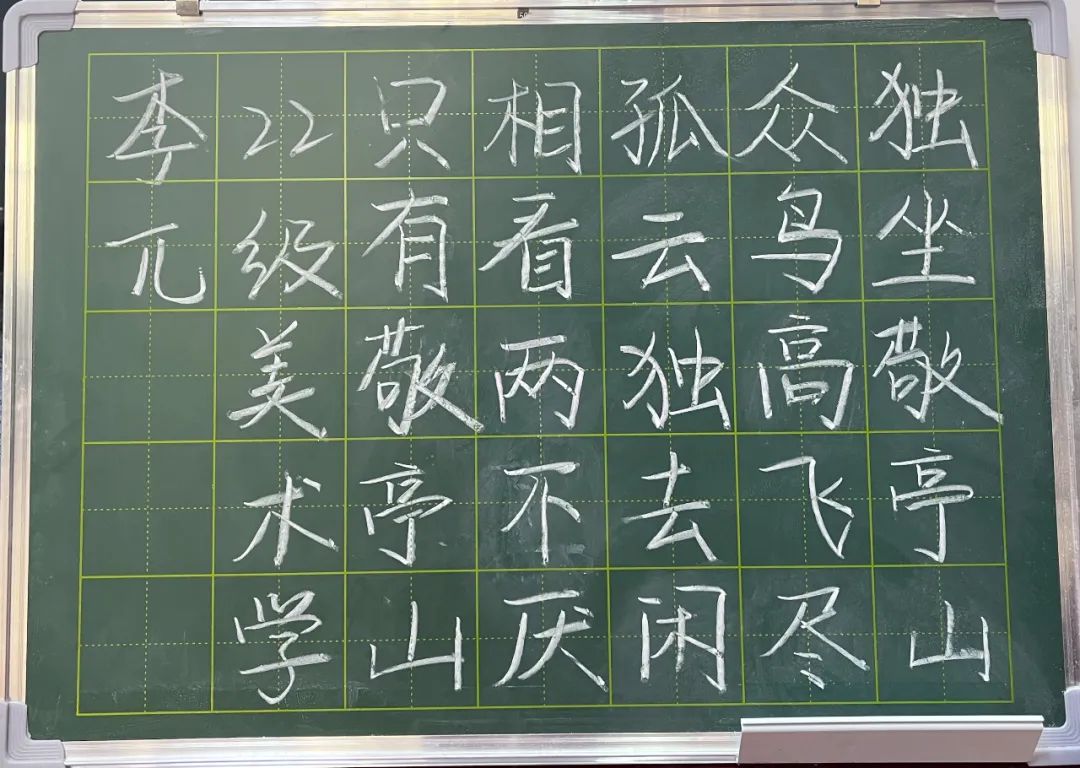 独坐敬亭山
众鸟高飞尽
孤云独去闲
相看两不厌
只有敬亭山
22级美术学
李兀